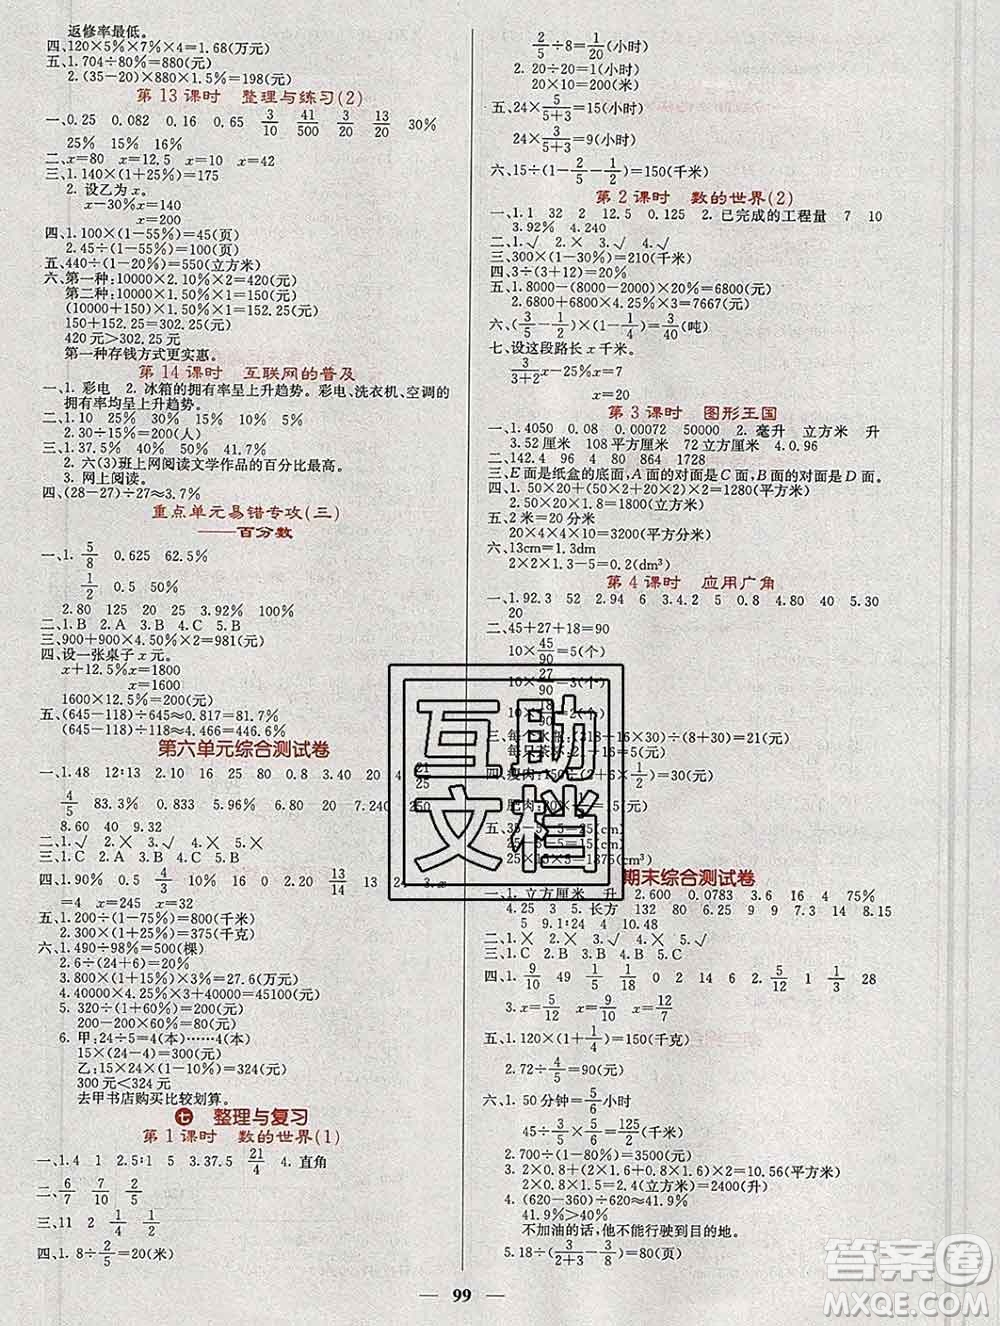 返修率最低。
四、120×5%×7%×4=1.68(万元)
五、1.704÷80%=880(元)
2.(35-20)×880×1.5%=198(元)
第13课时 整理与练习(2)
一、0.25 0.082 0.16 0.65 3/10 41/500 3/20 13/20 30%
25% 15% 16%
二、x=80 x=12.5 x=10 x=42
三、1.140×(1+25%)=175
2. 设乙为x。
x-30%x=140
x=200
四、1.100×(1-55%)=45(页)
2.45÷(1-55%)=100(页)
五、440÷(1-20%)=550(立方米)
六、第一种:10000×2.10%×2=420(元)
第二种:10000×1.50%×1=150(元)
(10000+150)×1.50%×1=152.25(元)
150+152.25=302.25(元)
420元>302.25元
第一种存钱方式更实惠。
第14课时 互联网的普及
一、1. 彩电 2. 冰箱的拥有率呈上升趋势。彩电、洗衣机、空调的
拥有率均呈上升趋势。
二、1.10 25% 20% 30% 25%
2.30÷15%=200(人)
三、1.37.5% 40% 50% 41.7%
2. 六(3)班上网阅读文学作品的百分比最高。
3. 网上阅读。
四、(28-27)÷27≈3.7%
重点单元易错专攻(三)
——百分数
一、1. 5/8 0.625 62.5%
1/2 0.5 50%
2.80 125 20 25 3.92% 4.120
二、1.B 2.A 3.B 4.A
三、900+900×4.50%×2=981(元)
四、设一张桌子x元。
x+12.5%x=1800
x=1600
1600×12.5%=200(元)
五、(645-118)÷645≈0.817=81.7%
(645-118)÷118≈4.466=446.6%
第六单元综合测试卷
一、1.48 12:13 2.10 16 25 250 3.20 4 21/25
4/5 83.3% 0.833 5.96% 6.120 7.240 250
8.60 40 9.32
二、1.√ 2.× 3.× 4.× 5.√
三、1.C 2.A 3.B 4.C 5.A
四、1.90% 0.5 4/3 16 10 2.20 13/14 13 24 3.x
=4 x=240 x=32
五、1.200×(1-75%)=50(千米)
2.300×(1+25%)=375(千克)
六、1.490÷98%=500(棵)
2.6÷(24+6)=20%
3.800×(1+15%)×3%=27.6(万元)
4.40000×4.25%×3+40000=45100(元)
5. 320÷(1-60%)=800(元)
800-200-320=280(元)
6. 甲:24÷5=4(本)……4(本)
15×(24-4)=300(元)
乙:15×24×(1-10%)=324(元)
300元<324元
去甲书店购买比较划算。
七 整理与复习
第1课时 数的世界(1)
一、1.4 1 2.5:1 5 3.37.5 21/4 4. 直角
二、6/7 7/10 1/2 5/6
三、11 2 1/4 1/2
四、1. 8÷2/5=20(米)
2/5÷8=1/20(小时)
2. 20÷20=1(小时)
20×10=200(千米)
五、24×5/(5+3)=15(小时)
24×3/(5+3)=9(小时)
六、15÷(1-2/5-1/2)=150(千米)
第2课时 数的世界(2)
一、1.1 32 2 12.5 0.125 2. 已完成的工程量 7 10
3.92% 4.240
二、1.√ 2.× 3.√ 4.√ 5.×
三、300×(1-30%)=210(千米)
四、3÷(3+12)=20%
五、1.8000-(8000-2000)×20%=6800(元)
2.6800+6800×4.25%×3=7667(元)
六、(3/5-1/2)×(1-1/4)=3/40(吨)
七、设这段路长x千米。
3/(3+2)x-25%x=7
x=20
第3课时 图形王国
一、1.4050 0.08 0.00072 50000 2. 毫升 立方米 升
3.52厘米 108平方厘米 72立方厘米 4.0.96
二、142.4 96 24 80 864 1728
三、E面是纸盒的底面,A面的对面是C面,B面的对面是D面。
四、1.50×20+(50×20+20×20)×2=3800(平方厘米)
2.50×20×1.8=1800(立方厘米)
五、2米=20分米
20×4×4×10=3200(平方分米)
六、13cm=1.3dm
2×2×1.3-5=0.2(dm³)
第4课时 应用广角
一、1.92.3 52 2.94 6 3.4.2 5 0.8 4.80 5.30
20
二、45+27+18=90
10×45/90=5(个)
五、
期末综合测试卷
一、1. 立方厘米 升 2.600 0.0783 3.16 4 75%
4.25 3 5. 长方 132 80 6.25 9 9 7.14 8.15
5 9.1:24 10.48
二、1.× 2.× 3.√ 4.× 5.√
三、1.C 2.B 3.A 4.B 5.C
四、1. 9/10 49 1/5 1/16 0 2 14 6 2. 7/12 9/14 1/3 28
3.x=5/12 x=3/10 x=8/9
五、1.120×(1+1/4)=150(千克)
2. 72÷4/5=90
六、1.50分钟=5/6小时
45÷5/6=54(千米) 5/6÷45=2/125(小时)
2.700÷(1-80%)=3500(元)
3.2×0.8+(2×1.6+0.8×1.6)×2=10.56(平方米)
2×0.8×1.5=2.4(立方米)=2400(升)
4.(620-360)÷620≈41.9%
41.9%>30%
不加油的话,他不能行驶到目的地。
5. 18÷(3/(2+3)-3/8)=80(页)
互助文档
答案圈
MXQE.COM
— 99 —